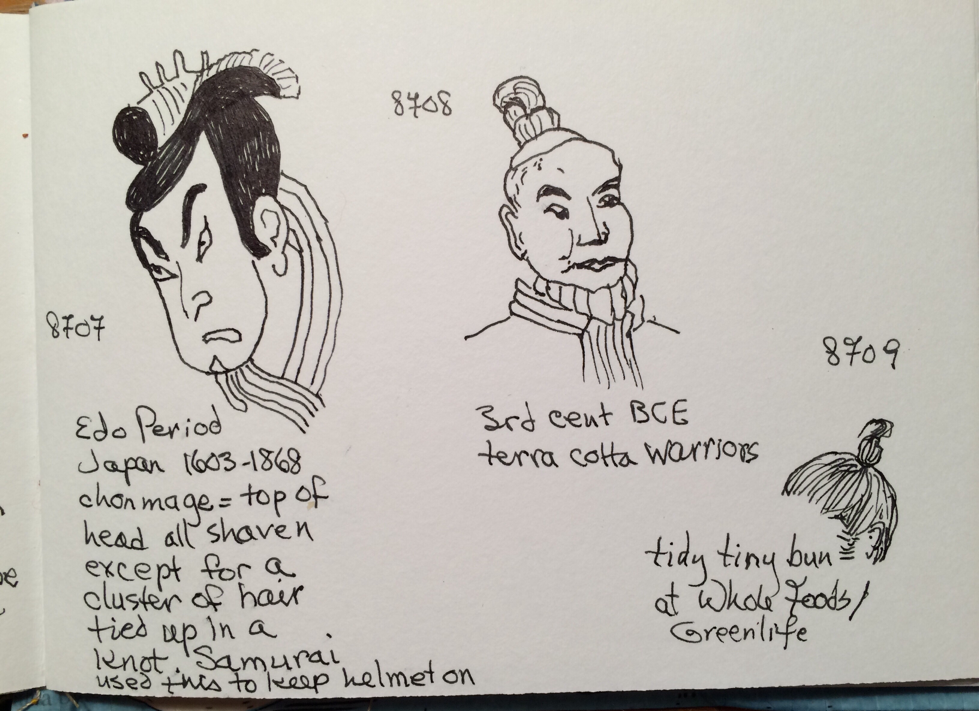 8707
Edo Period
Japan 1603-1868
chonmage = top of
head all shaven
except for a
cluster of hair
tied up in a
knot. Samurai
used this to keep helmet on
8708
3rd cent BCE
terra cotta warriors
8709
tidy tiny bun
at Whole Foods/
Greenlife